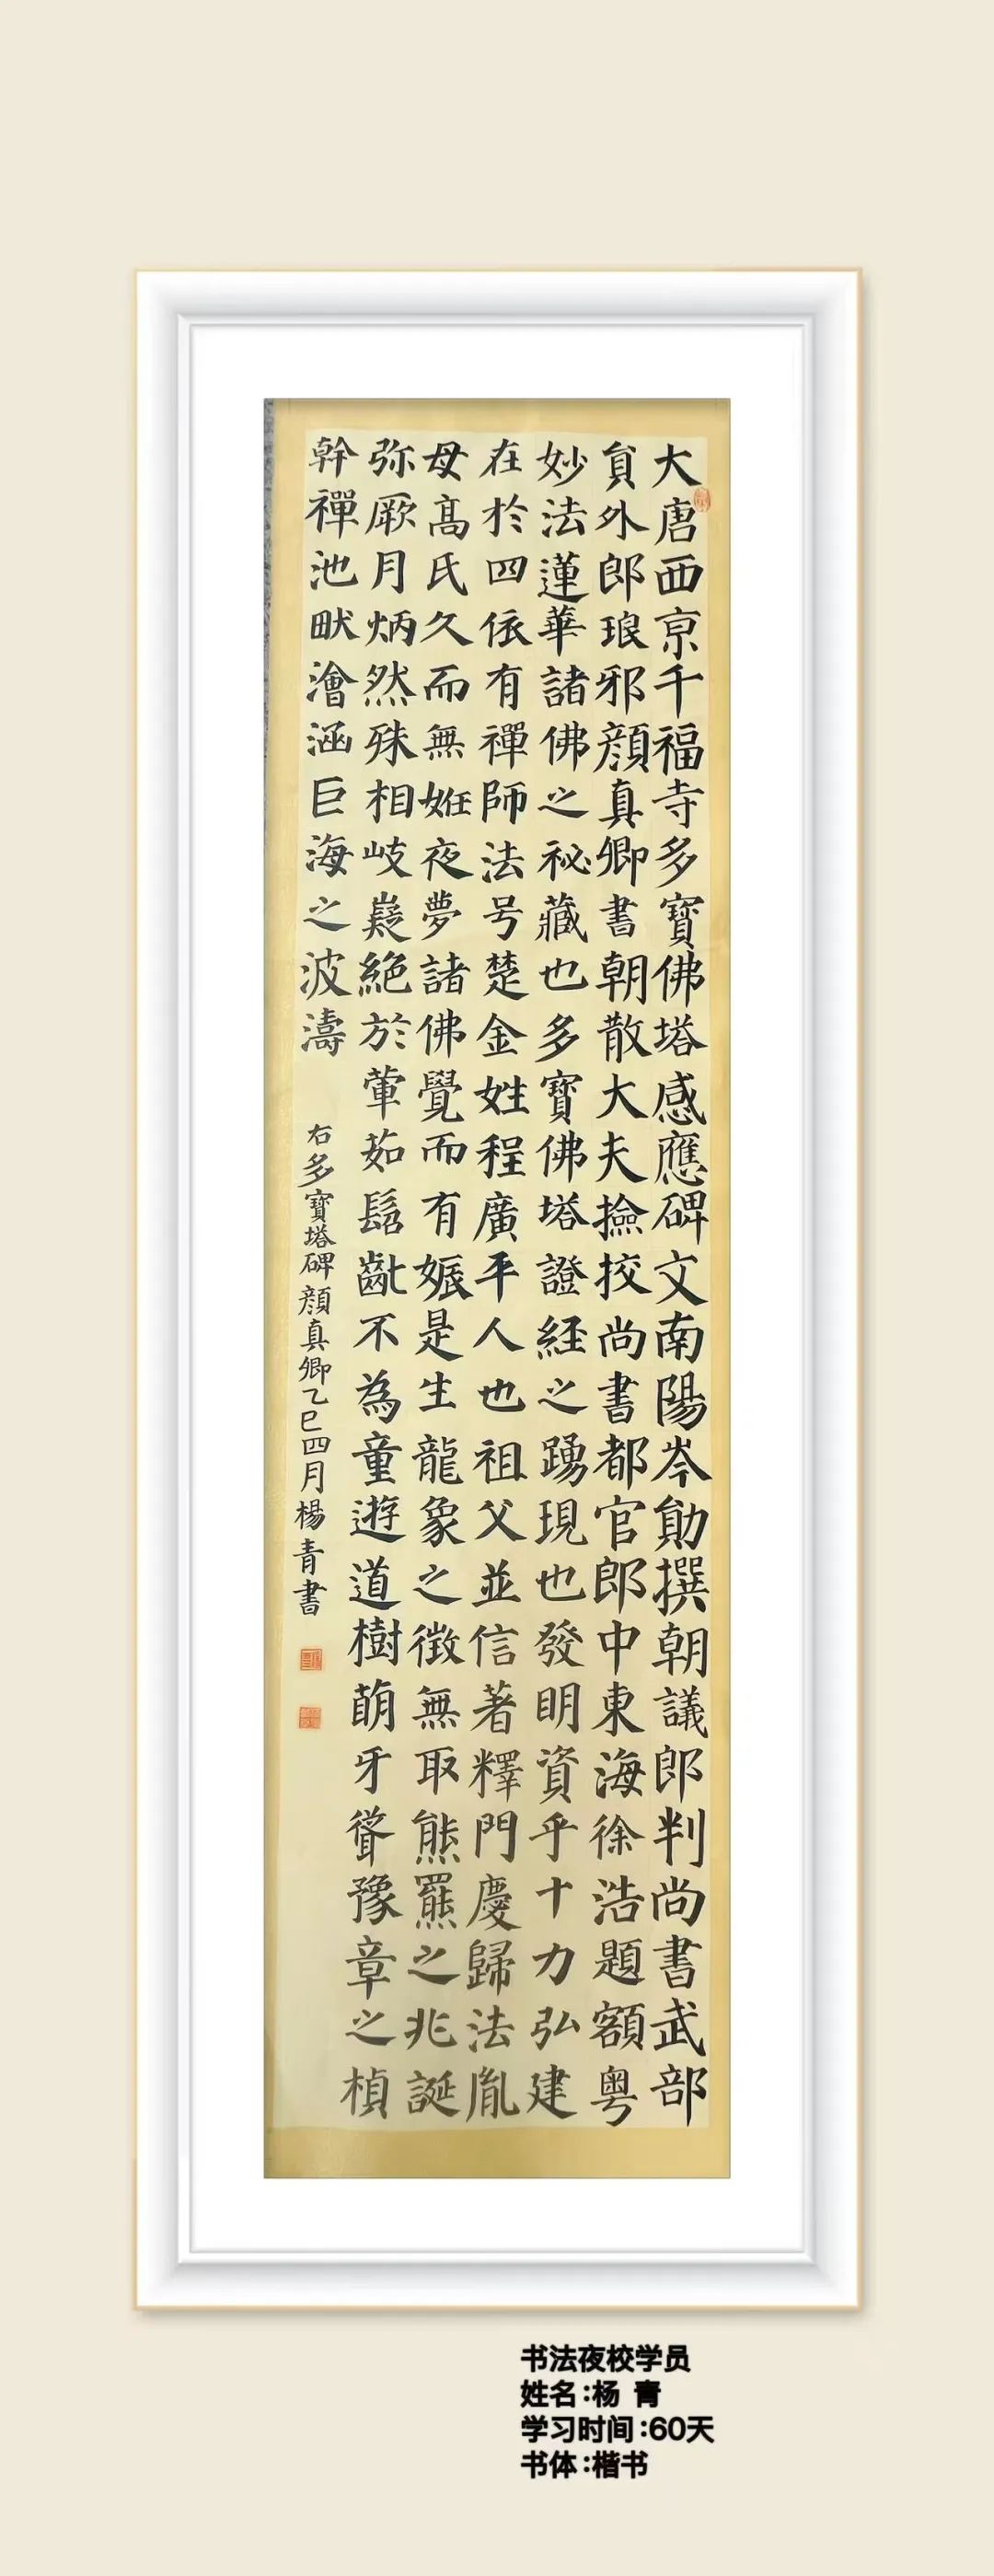 大唐西京千福寺多寶佛塔感應碑文南陽岑勛撰朝議郎判尚書武部
貟外郎琅邪顏真卿書朝散大夫撿挍尚書都官郎中東海徐浩題額粤
妙法蓮華諸佛之祕藏也多寶佛塔證経之踴現也發明資乎十力弘建
在於四依有禪師法号楚金姓程廣平人也祖父並信著釋門慶歸法胤
母髙氏久而無姙夜夢諸佛覺而有娠是生龍象之徵無取熊羆之兆誕
弥厥月炳然殊相岐嶷絕於葷茹髫齔不為童遊道樹萌牙聳豫章之楨
幹禪池畎澮涵巨海之波濤
右多寶塔碑顏真卿乙巳四月楊青書
书法夜校学员
姓名:杨 青
学习时间:60天
书体:楷书